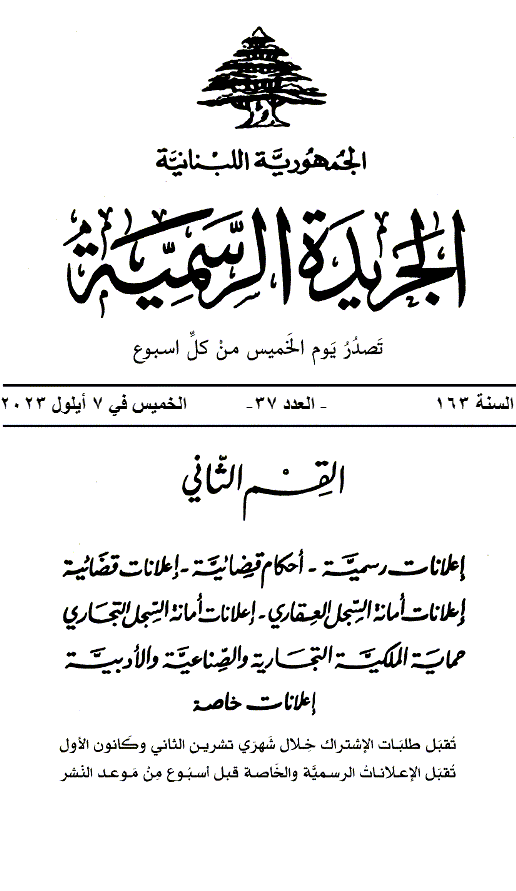 الجُمهُوريَّة اللبْنانيَّة
الجَريدَة الرسَّميَّة
تَصدُرُ يَوم الخَميس منْ كلِّ اسبوع
السنة ١٦٣ - العدد ٣٧- الخميس في ٧ أيلول ٢٠٢٣
القِسْم الثّاني
إعلانات رسميَّة - أحكام قضائيَّة - إعلانات قضائية
إعلانات أمانة السِّجل العقاري - إعلانات أمانة السِّجل التجاري
حماية الملكيَّة التجارية والصِّناعيَّة والأدبيَّة
إعلانات خاصة
تُقبَل طلبَات الإشتراك خِلال شَهرَي تشرين الثاني وكَانون الأول
تُقبَل الإعلاناتُ الرسميَّة والخَاصة قبل أسبُوع مِنْ مَوعد النَشر